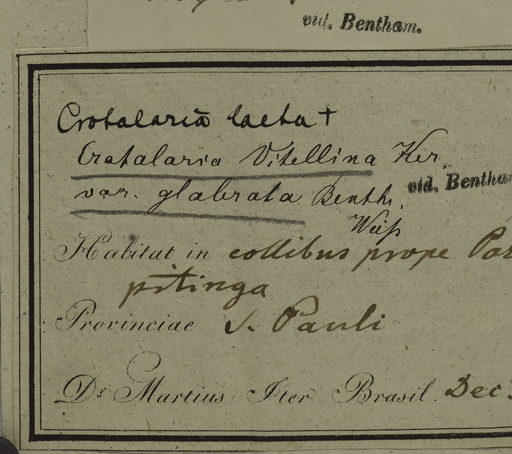 vid. Bentham.
Crotalaria laeta +
Crotalaria Vitellina Ker.
var. glabrata Benth. vid. Bentham
Habitat in collibus prope Par
pitinga
Provinciae S. Pauli
Dr Martius Iter Brasil. Dec.